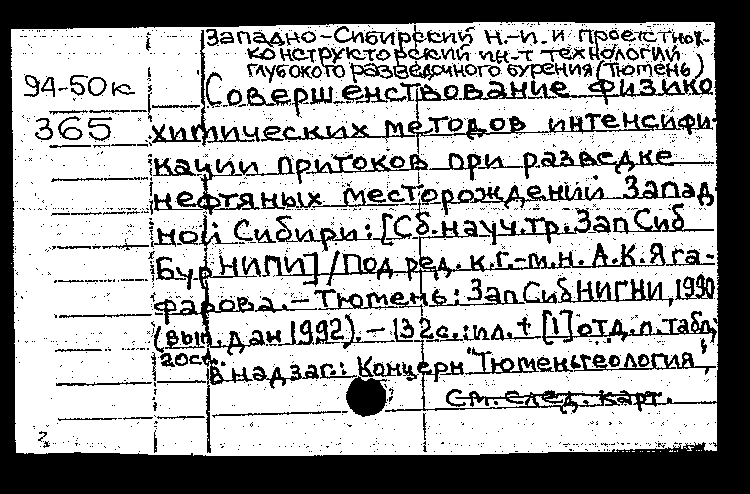 Западно-Сибирский н.-и. и проектно-
конструкторский ин-т технологии
глубокого разведочного бурения (Тюмень)
94-50к Совершенствование физико
365 химических методов интенсифи-
кации притоков при разведке
нефтяных месторождений Запад
ной Сибири: [Сб. науч. тр. ЗапСиб
БурНИПИ] / Под ред. к.г.-м.н. А.К. Яга-
фарова. - Тюмень: ЗапСибНИГНИ, 1990
(вып. дан 1992). - 132с.: ил. + [1] отд. л. табл;
20см.
В надзаг.: Концерн "Тюменьгеология",
См. след. карт.